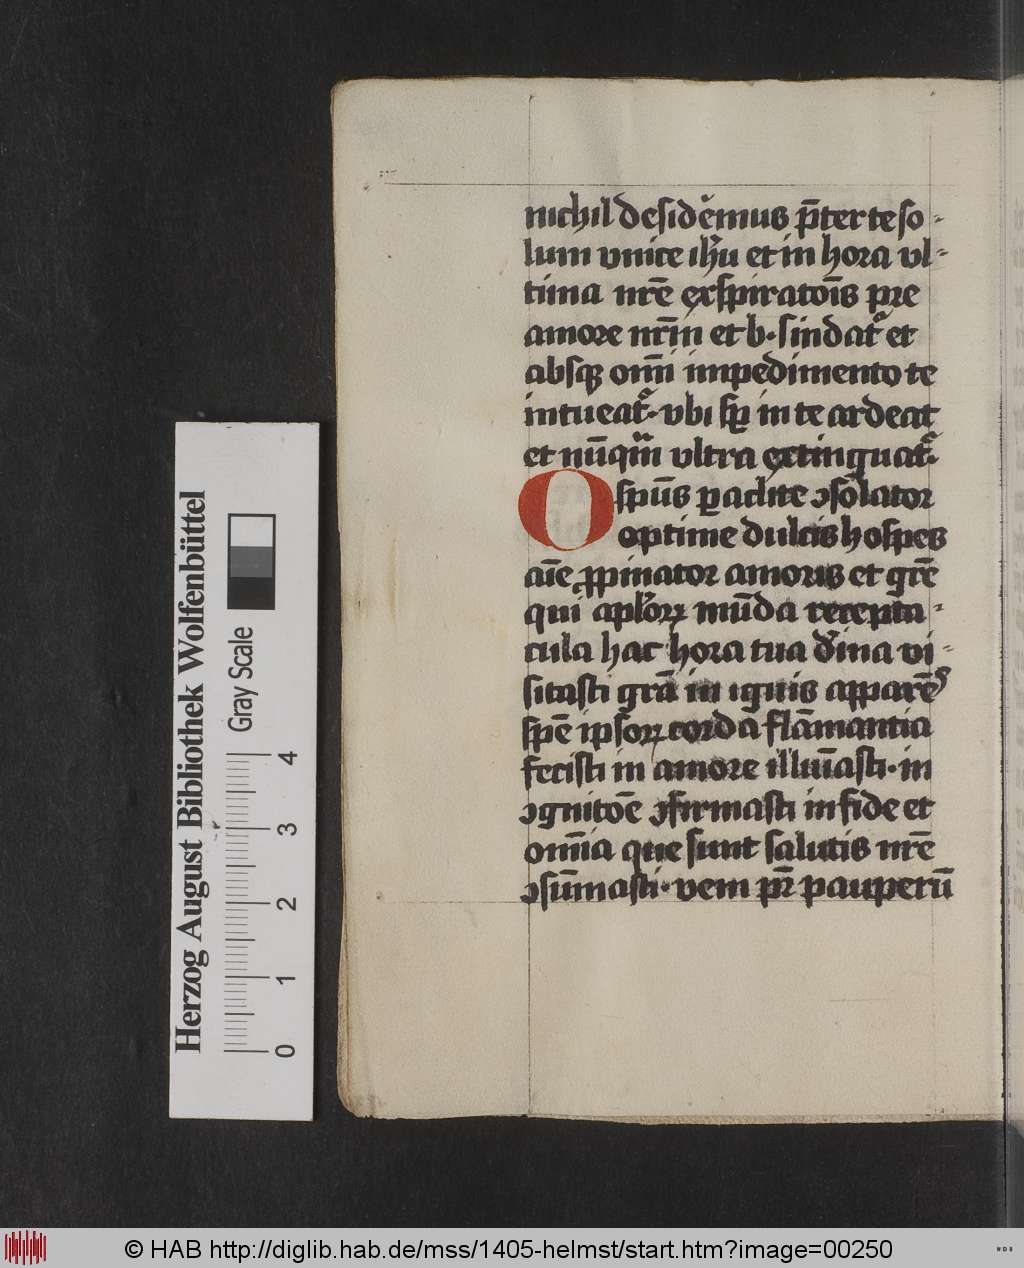 nichil desidēmus p̄ter te so-
lum vnice ih̄u et in hora vl-
tima nr̄e exspiratōis pre
amore nr̄m et b. findatᷣ et
absqꝫ om̄i impedimento te
intueatᷣ. vbi sp̄ in te ardeat
et nūqᷓm vltra extinguatᷣ.
O sp̄us ꝑaclite ꝯsolator
optime dulcis hospes
aīe ꝓpinator amoris et gr̄e
qui apl'oꝝ mūda recepta-
cula hac hora tua d'ina vi-
sitasti gr̄a in ignis apparēᷤ
sp̄e ipsoꝝ corda flāmantia
fecisti in amore illūasti. in
ꝯgnitōe ꝯfirmasti in fide et
om̄ia que sunt salutis nr̄e
ꝯsūmasti. veni pr̄ pauperū
Herzog August Bibliothek Wolfenbüttel
Gray Scale
0 1 2 3 4
© HAB http://diglib.hab.de/mss/1405-helmst/start.htm?image=00250